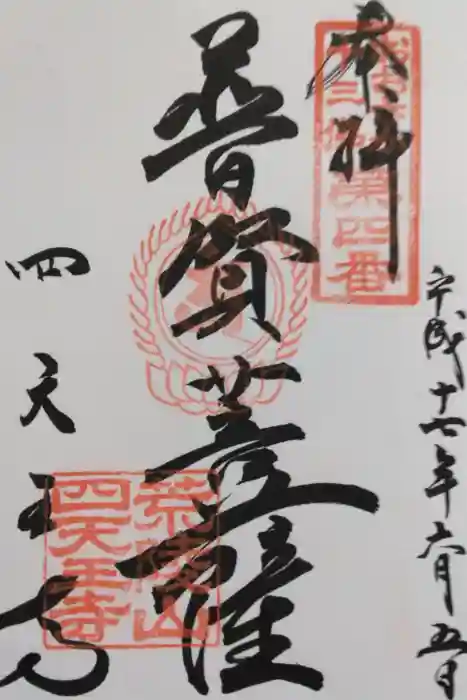 平成十七年六月五日
奉拝
十三佛第四番
普賢菩薩
四天王寺
荒陵山
四天王寺